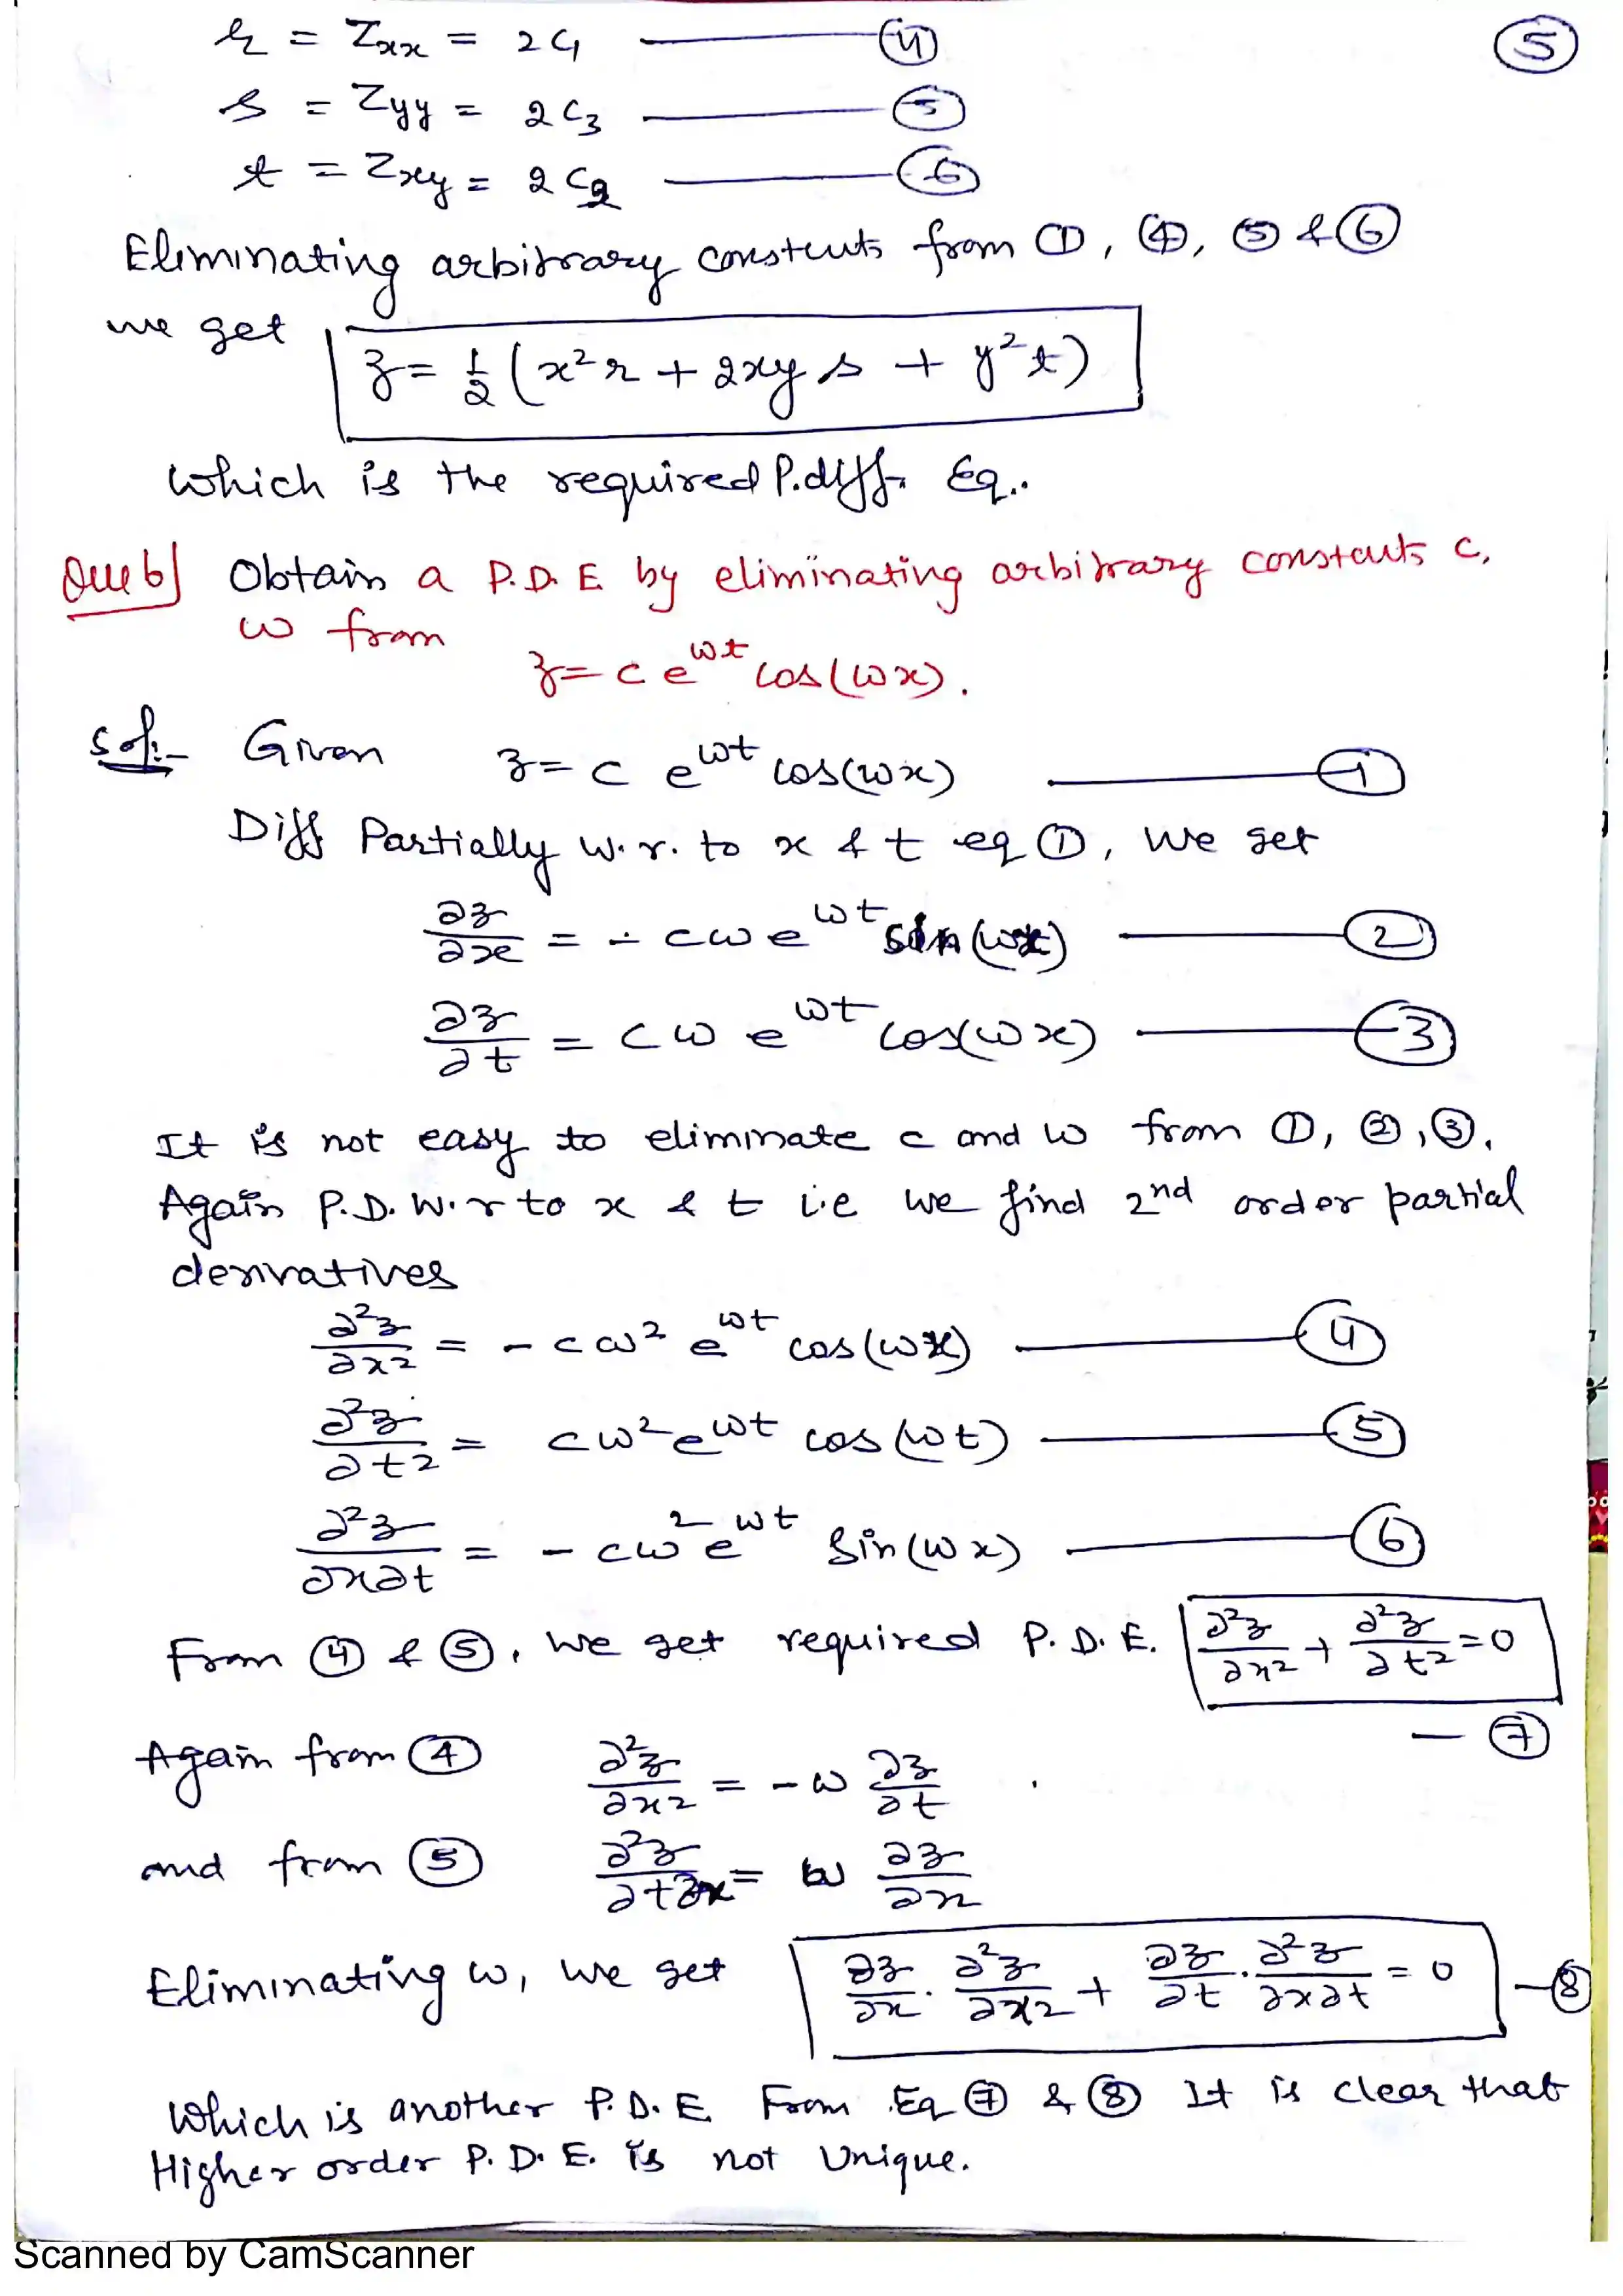 r = Zxx = 2C1 ——— ④
⑤
s = Zyy = 2C3 ——— ⑤
t = Zxy = 2C2 ——— ⑥
Eliminating arbitrary constents from ①, ④, ⑤ & ⑥
we get z = 1/2 (x²r + 2xy s + y²t)
which is the required P.diff. Eq..
Que 6] Obtain a P.D.E by eliminating arbitrary constents c,
ω from
z = c e^ωt cos(ωx).
Sol:- Given z = c e^ωt cos(ωx) ——— ①
Diff Partially w.r. to x & t eq ①, we get
∂z/∂x = - cω e^ωt sin(ωx) ——— ②
∂z/∂t = cω e^ωt cos(ωx) ——— ③
It is not easy to eliminate c and ω from ①, ②, ③.
Again P.D. w.r to x & t i.e we find 2nd order partial
derivatives
∂²z/∂x² = - cω² e^ωt cos(ωx) ——— ④
∂²z/∂t² = cω² e^ωt cos(ωt) ——— ⑤
∂²z/∂x∂t = - cω² e^ωt sin(ωx) ——— ⑥
From ④ & ⑤, we get required P.D.E. ∂²z/∂x² + ∂²z/∂t² = 0
— ⑦
Again from ④ ∂²z/∂x² = -ω ∂z/∂t
and from ⑤ ∂²z/∂t∂x = ω ∂z/∂x
Eliminating ω, we get ∂z/∂x · ∂²z/∂x² + ∂z/∂t · ∂²z/∂x∂t = 0 — ⑧
Which is another P.D.E From Eq ⑦ & ⑧ It is clear that
Higher order P.D.E. is not unique.
Scanned by CamScanner